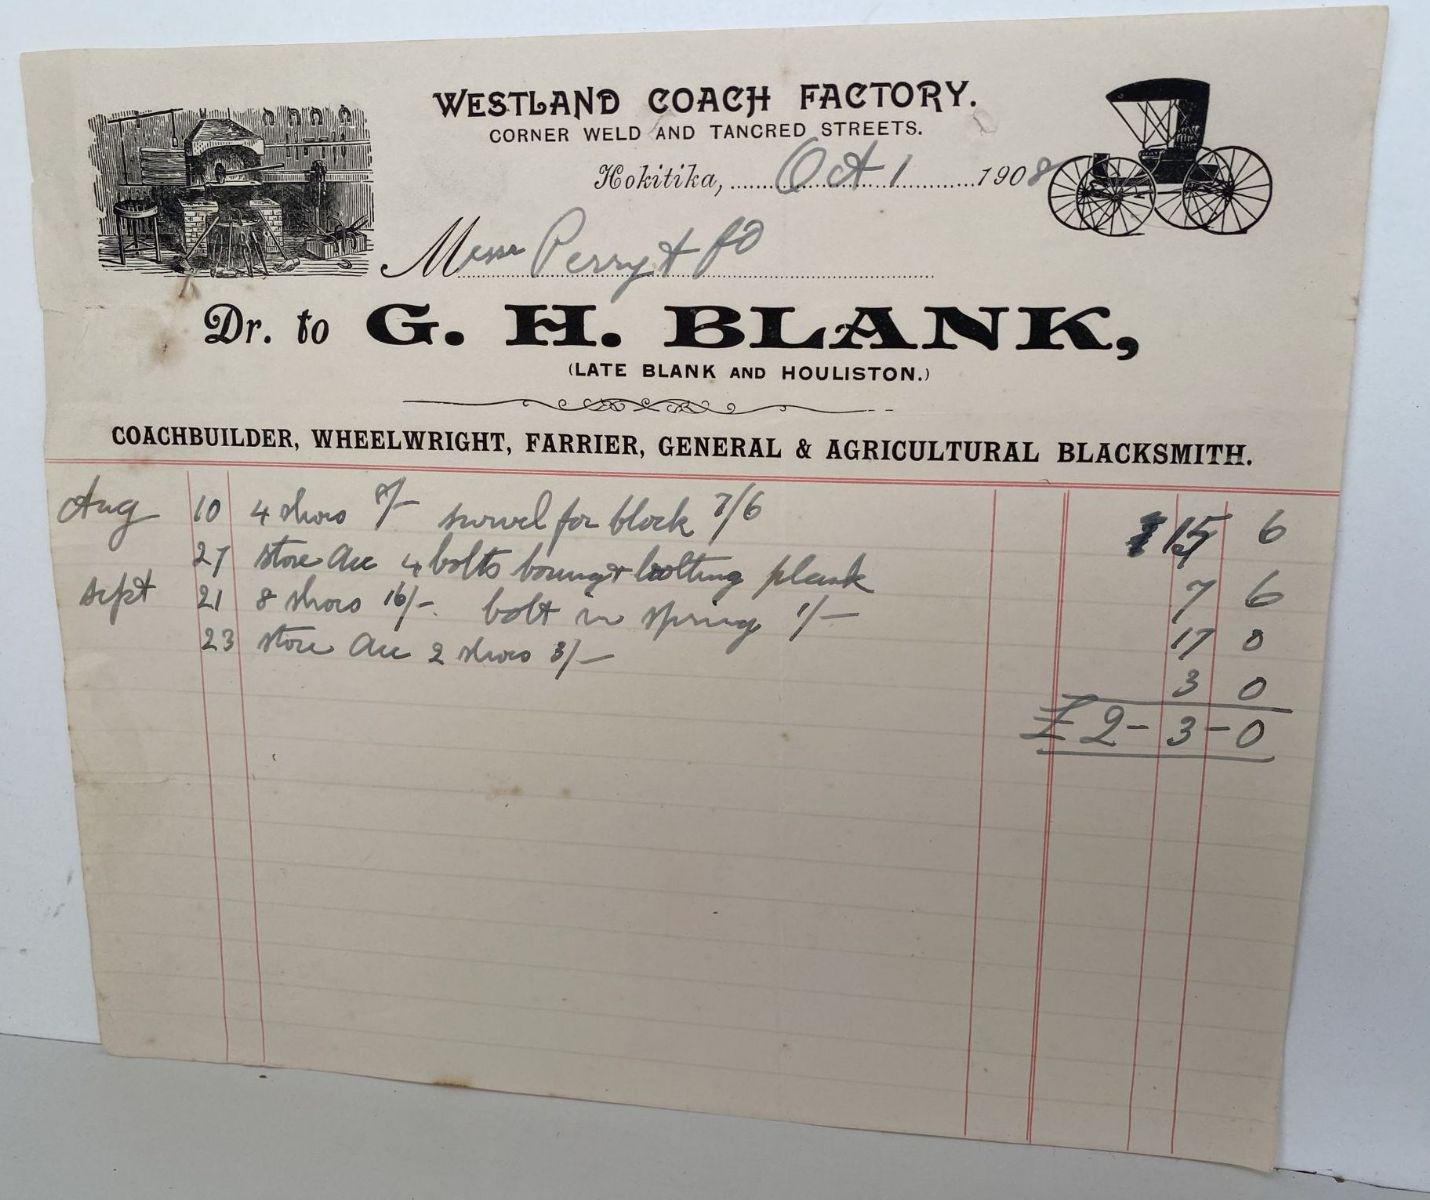 WESTLAND COACH FACTORY.
CORNER WELD AND TANCRED STREETS.
Hokitika, Oct 1 1908
Messrs Perry & Co
Dr. to G. H. BLANK,
(LATE BLANK AND HOULISTON.)
COACHBUILDER, WHEELWRIGHT, FARRIER, GENERAL & AGRICULTURAL BLACKSMITH.
Aug 10 4 shoes 8/- swivel for block 7/6 15 6
27 store acc 4 bolts boring & bolting plank 7 6
Sept 21 8 shoes 16/- bolt in spring 1/- 17 0
23 store acc 2 shoes 3/- 3 0
£2-3-0